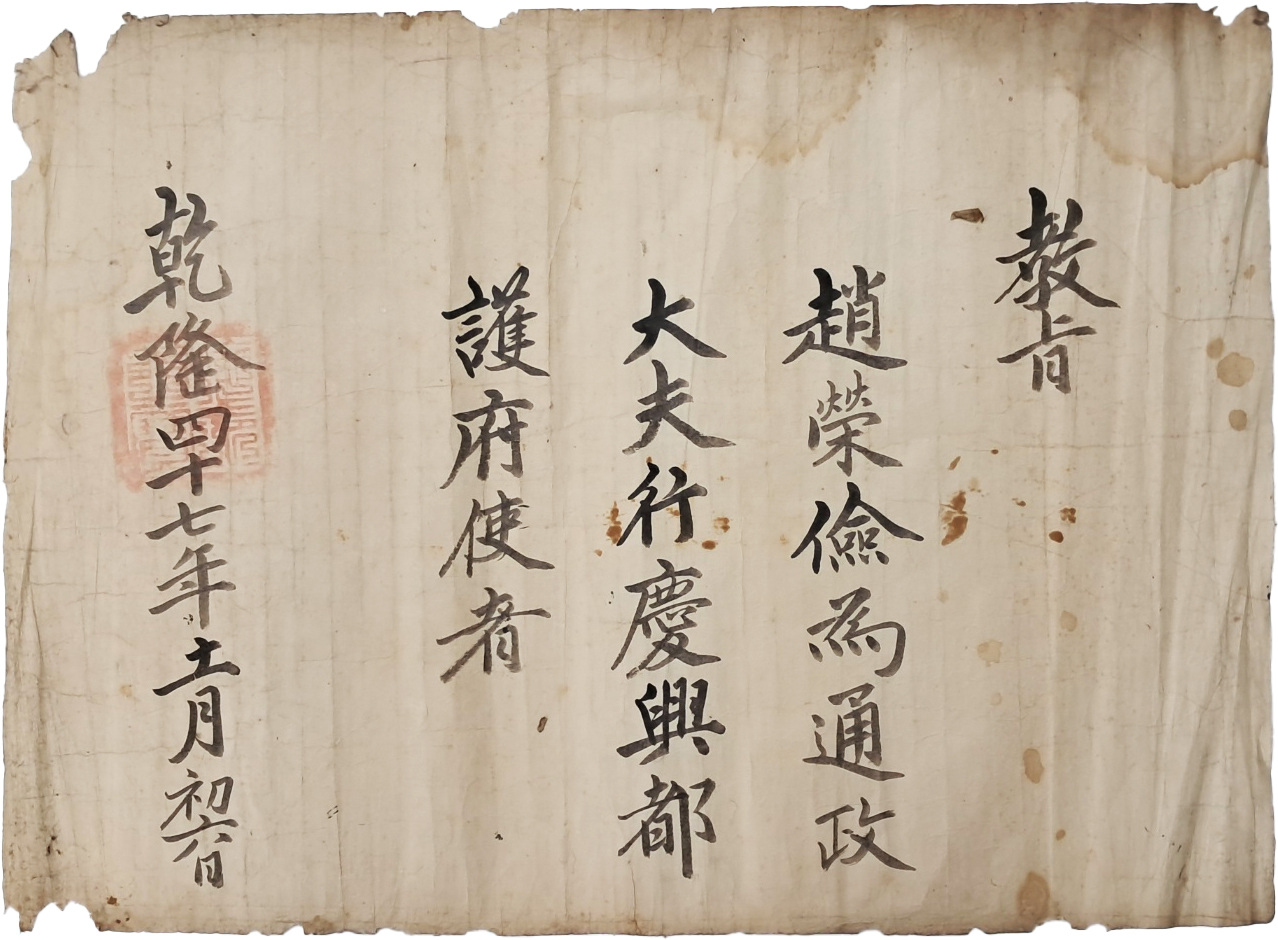 敎旨
趙榮儉爲通政
大夫行慶興都
護府使者
乾隆四十七年十一月初六日